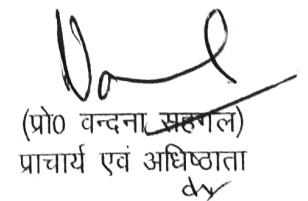 (प्रो0 वन्दना सहगल)
प्राचार्य एवं अधिष्ठाता